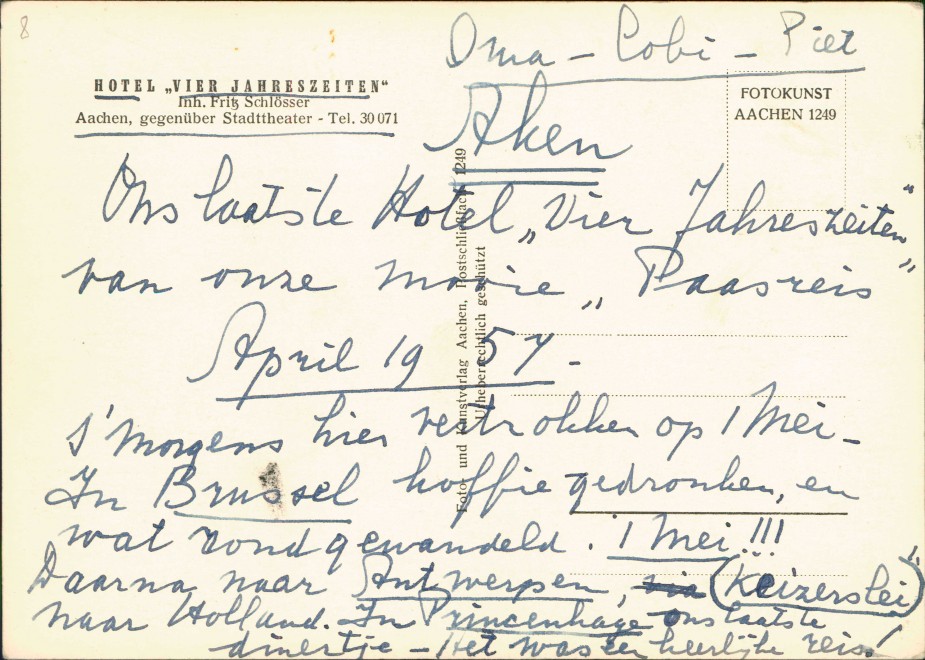 8
Oma - Cobi - Piet
HOTEL „VIER JAHRESZEITEN“
Inh. Fritz Schlösser
Aachen, gegenüber Stadttheater - Tel. 30 071
FOTOKUNST
AACHEN 1249
Aken
Ons laatste Hotel „Vier Jahreszeiten”
van onze mooie „Paasreis”
April 1957 -
s'Morgens hier vertrokken op 1 Mei -
In Brussel koffie gedronken, en
wat rond gewandeld. 1 Mei!!!
Daarna naar Antwerpen, via (Keizerslei)
naar Holland. In Princenhage ons laatste
dinertje - Het was een heerlijke reis!
Foto- und Kunstverlag Aachen, Postschließfach 1249
Urheberrechtlich geschützt